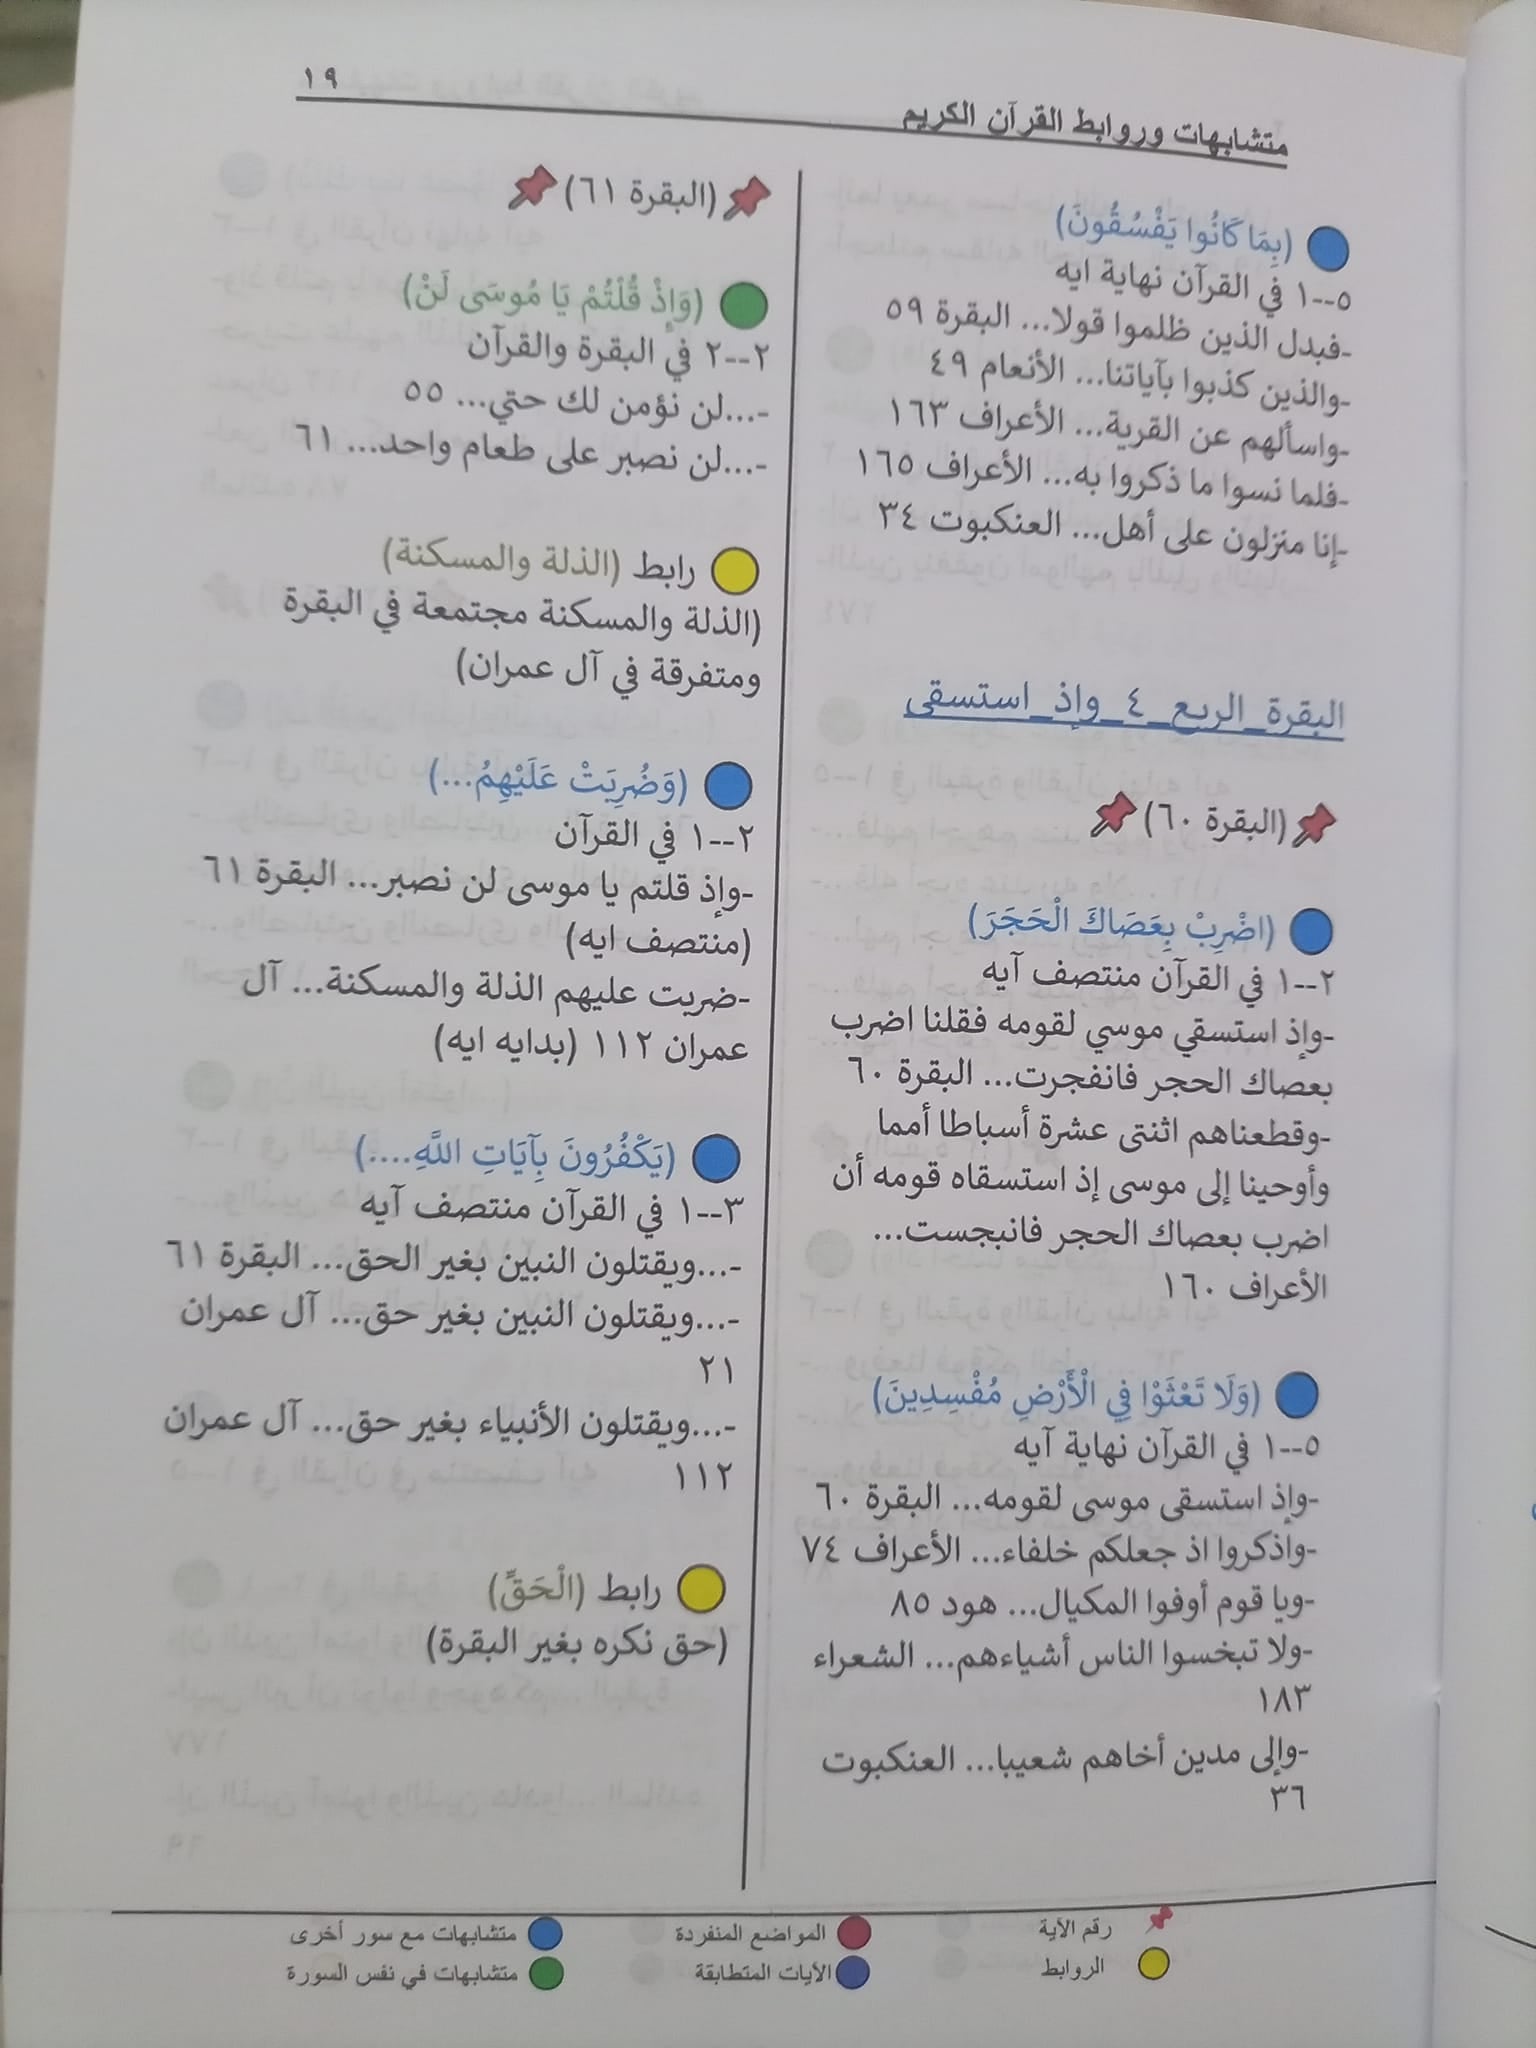 متشابهات وروابط القرآن الكريم
١٩
(بِمَا كَانُوا يَفْسُقُونَ)
٥--١ في القرآن نهاية ايه
-فبدل الذين ظلموا قولا... البقرة ٥٩
-والذين كذبوا بآياتنا... الأنعام ٤٩
-واسألهم عن القرية... الأعراف ١٦٣
-فلما نسوا ما ذكروا به... الأعراف ١٦٥
-إنا منزلون على أهل... العنكبوت ٣٤
البقرة_الربع_٤_وإذ_استسقى
(البقرة ٦٠)
(اضْرِبْ بِعَصَاكَ الْحَجَرَ)
٢--١ في القرآن منتصف آيه
-وإذ استسقي موسي لقومه فقلنا اضرب
بعصاك الحجر فانفجرت... البقرة ٦٠
-وقطعناهم اثنتى عشرة أسباطا أمما
وأوحينا إلى موسى إذ استسقاه قومه أن
اضرب بعصاك الحجر فانبجست...
الأعراف ١٦٠
(وَلَا تَعْثَوْا فِي الْأَرْضِ مُفْسِدِينَ)
٥--١ في القرآن نهاية آيه
-وإذ استسقى موسى لقومه... البقرة ٦٠
-واذكروا اذ جعلكم خلفاء... الأعراف ٧٤
-ويا قوم أوفوا المكيال... هود ٨٥
-ولا تبخسوا الناس أشياءهم... الشعراء
١٨٣
-وإلى مدين أخاهم شعيبا... العنكبوت
٣٦
(البقرة ٦١)
(وَإِذْ قُلْتُمْ يَا مُوسَى لَنْ)
٢--٢ في البقرة والقرآن
-...لن نؤمن لك حتي... ٥٥
-...لن نصبر على طعام واحد... ٦١
رابط (الذلة والمسكنة)
(الذلة والمسكنة مجتمعة في البقرة
ومتفرقة في آل عمران)
(وَضُرِبَتْ عَلَيْهِمُ...)
٢--١ في القرآن
-وإذ قلتم يا موسى لن نصبر... البقرة ٦١
(منتصف ايه)
-ضربت عليهم الذلة والمسكنة... آل
عمران ١١٢ (بدايه ايه)
(يَكْفُرُونَ بِآيَاتِ اللَّهِ....)
٣--١ في القرآن منتصف آيه
-...ويقتلون النبين بغير الحق... البقرة ٦١
-...ويقتلون النبين بغير حق... آل عمران
٢١
-...ويقتلون الأنبياء بغير حق... آل عمران
١١٢
رابط (الْحَقِّ)
(حق نكره بغير البقرة)
رقم الآية
المواضع المنفردة
متشابهات مع سور أخرى
الروابط
الآيات المتطابقة
متشابهات في نفس السورة